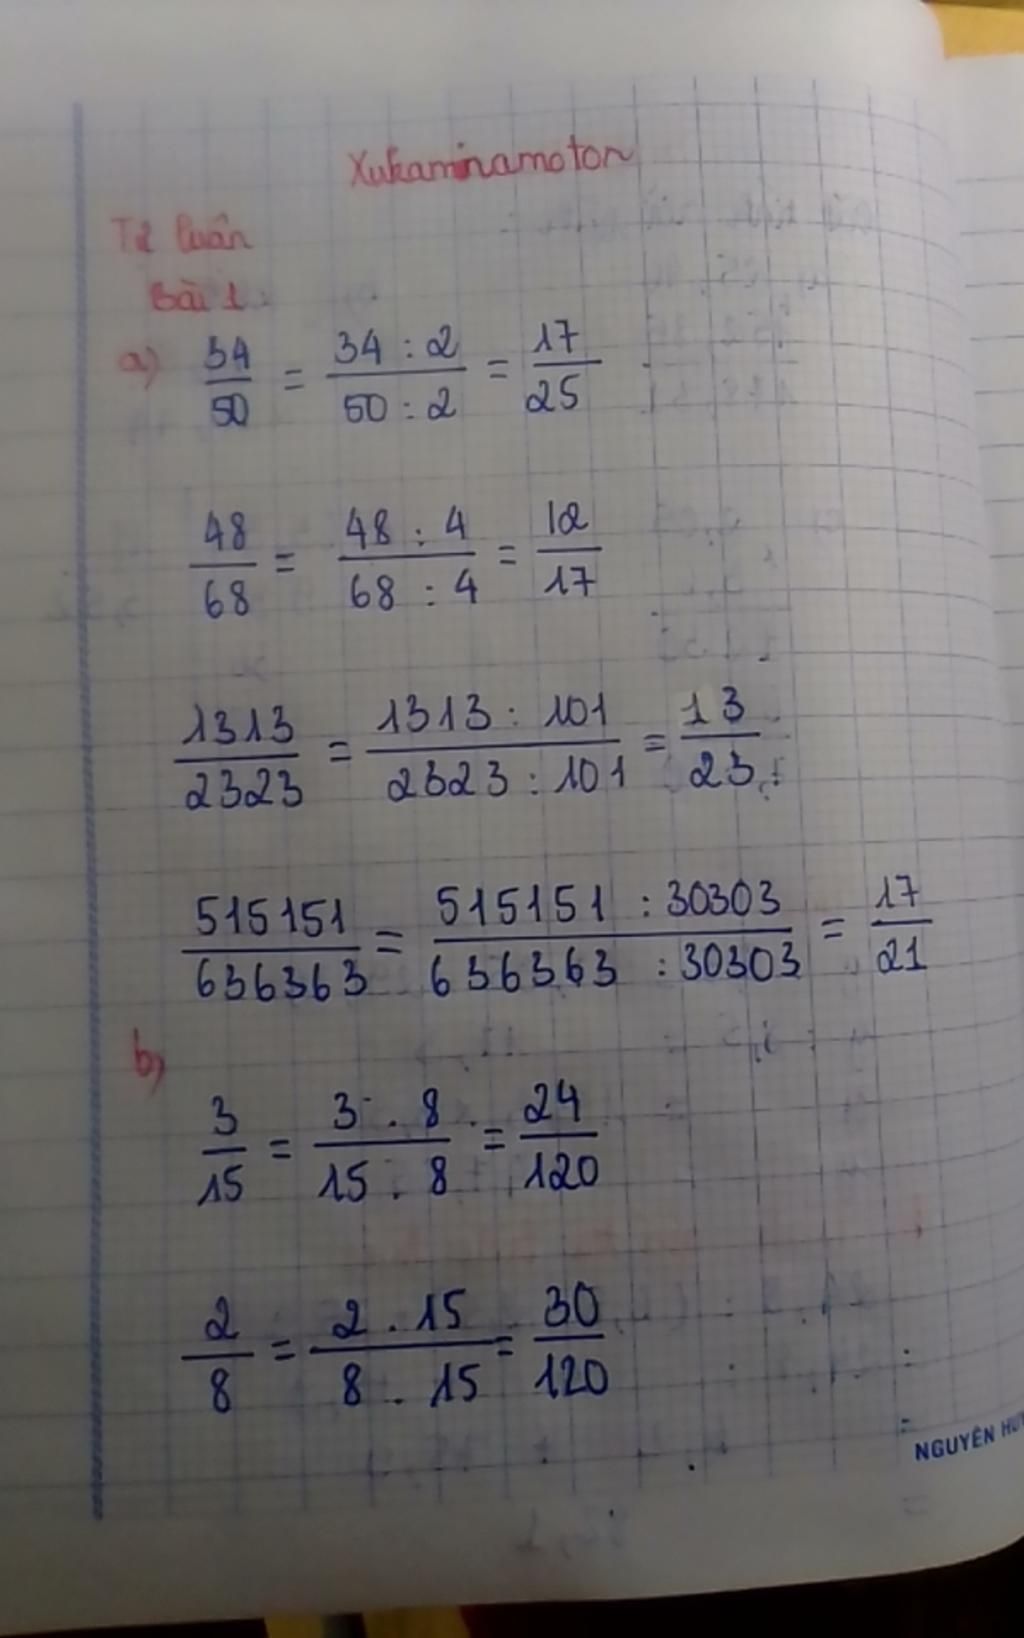 Xukaminamoton
Tự luận
Bài 1:
a) 34/50 = 34 : 2/50 : 2 = 17/25
48/68 = 48 : 4/68 : 4 = 12/17
1313/2323 = 1313 : 101/2323 : 101 = 13/23
515151/636363 = 515151 : 30303/636363 : 30303 = 17/21
b)
3/15 = 3 . 8/15 . 8 = 24/120
2/8 = 2 . 15/8 . 15 = 30/120
NGUYÊN